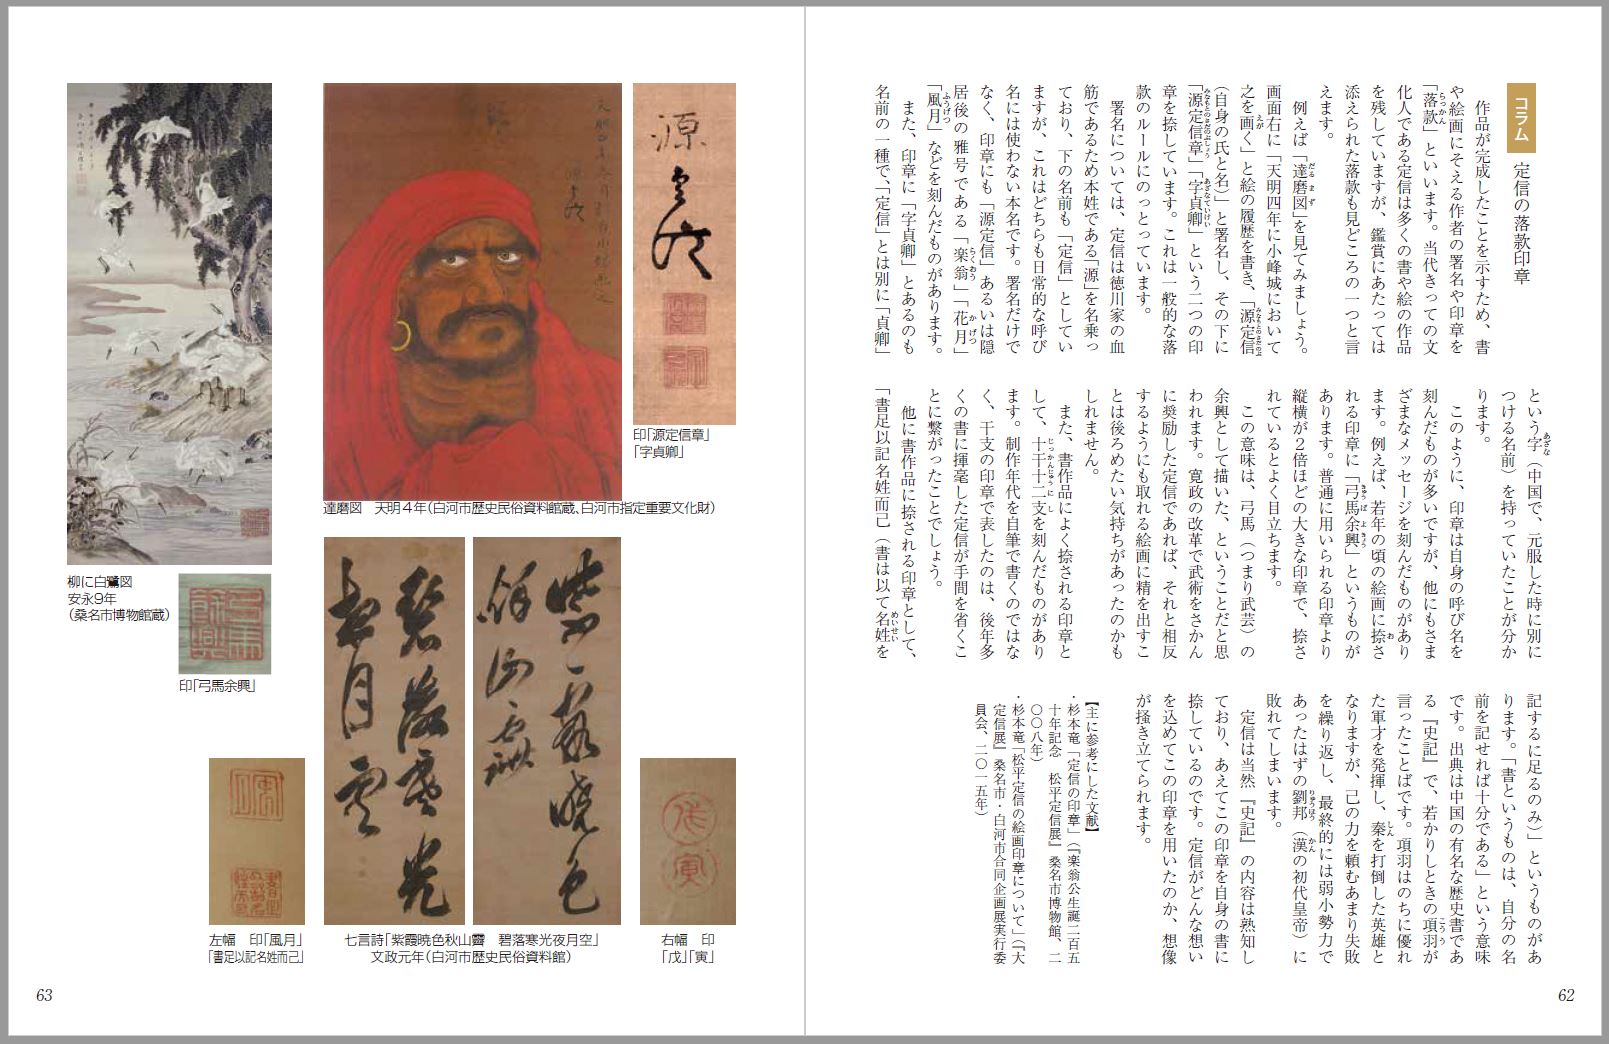 コラム 定信の落款印章
作品が完成したことを示すため、書
や絵画にそえる作者の署名や印章を
「落款」といいます。当代きっての文
化人である定信は多くの書や絵の作品
を残していますが、鑑賞にあたっては
添えられた落款も見どころの一つと言
えます。
例えば「達磨図」を見てみましょう。
画面右に「天明四年に小峰城において
之を画く」と絵の履歴を書き、「源定信
（自身の氏と名）」と署名し、その下に
「源定信章」「字貞卿」という二つの印
章を捺しています。これは一般的な落
款のルールにのっとっています。
署名については、定信は徳川家の血
筋であるため本姓である「源」を名乗っ
ており、下の名前も「定信」としてい
ますが、これはどちらも日常的な呼び
名には使わない本名です。署名だけで
なく、印章にも「源定信」あるいは隠
居後の雅号である「楽翁」「花月」
「風月」などを刻んだものがあります。
また、印章に「字貞卿」とあるのも
名前の一種で、「定信」とは別に「貞卿」
という字（中国で、元服した時に別に
つける名前）を持っていたことが分か
ります。
このように、印章は自身の呼び名を
刻んだものが多いですが、他にもさま
ざまなメッセージを刻んだものがあり
ます。例えば、若年の頃の絵画に捺さ
れる印章に「弓馬余興」というものが
あります。普通に用いられる印章より
縦横が２倍ほどの大きな印章で、捺さ
れているとよく目立ちます。
この意味は、弓馬（つまり武芸）の
余興として描いた、ということだと思
われます。寛政の改革で武術をさかん
に奨励した定信であれば、それと相反
するようにも取れる絵画に精を出すこ
とは後ろめたい気持ちがあったのかも
しれません。
また、書作品によく捺される印章と
して、十干十二支を刻んだものがあり
ます。制作年代を自筆で書くのではな
く、干支の印章で表したのは、後年多
くの書に揮毫した定信が手間を省くこ
とに繋がったことでしょう。
他に書作品に捺される印章として、
「書足以記名姓而已（書は以て名姓を
記するに足るのみ）」というものがあ
ります。「書というものは、自分の名
前を記せれば十分である」という意味
です。出典は中国の有名な歴史書であ
る『史記』で、若かりしときの項羽が
言ったことばです。項羽はのちに優れ
た軍才を発揮し、秦を打倒した英雄と
なりますが、己の力を頼むあまり失敗
を繰り返し、最終的には弱小勢力で
あったはずの劉邦（漢の初代皇帝）に
敗れてしまいます。
定信は当然『史記』の内容は熟知し
ており、あえてこの印章を自身の書に
捺しているのです。定信がどんな想い
を込めてこの印章を用いたのか、想像
が掻き立てられます。
【主に参考にした文献】
・杉本竜「定信の印章」（『楽翁公生誕二百五
十年記念　松平定信展』桑名市博物館、二
〇〇八年）
・杉本竜「松平定信の絵画印章について」（『大
定信展』桑名市・白河市合同企画展実行委
員会、二〇一五年）
62
印「源定信章」
「字貞卿」
達磨図　天明４年（白河市歴史民俗資料館蔵、白河市指定重要文化財）
柳に白鷺図
安永９年
（桑名市博物館蔵）
印「弓馬余興」
右幅　印
「戊」「寅」
七言詩「紫霞暁色秋山霽　碧落寒光夜月空」
文政元年（白河市歴史民俗資料館）
左幅　印「風月」
「書足以記名姓而已」
63